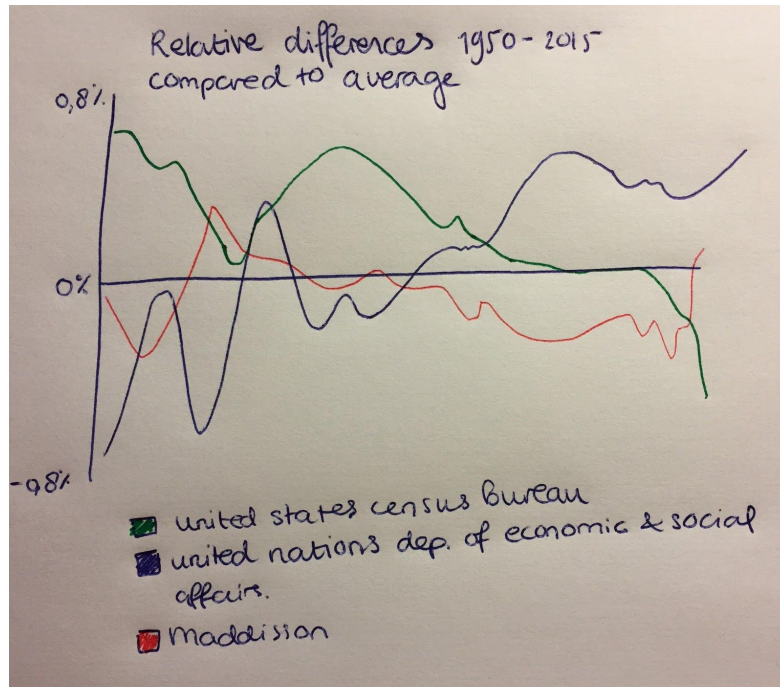 Relative differences 1950-2015
compared to average
0,8%
0%
-0,8%
united states census Bureau
united nations dep. of economic & social
affairs.
Maddission